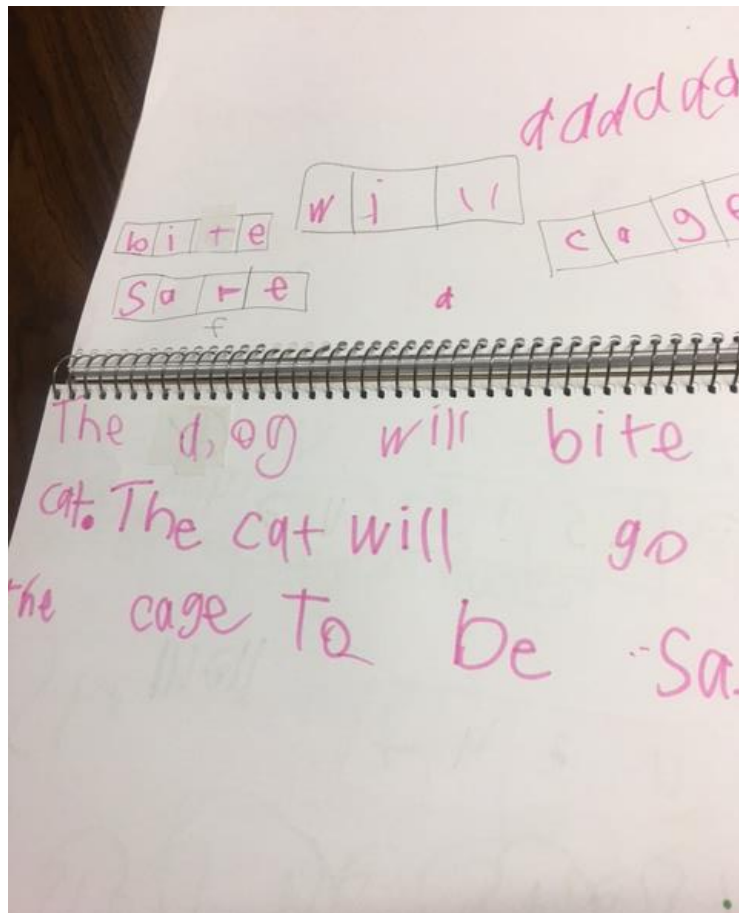 dddddd
will
bite
cage
safe
f
d
The dog will bite
cat. The cat will go
the cage To be sa